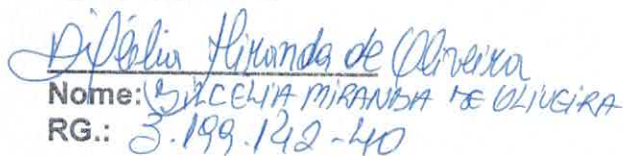 Dilcélia Miranda de Oliveira
Nome: DILCELIA MIRANDA DE OLIVEIRA
RG.: 3.199.142-40